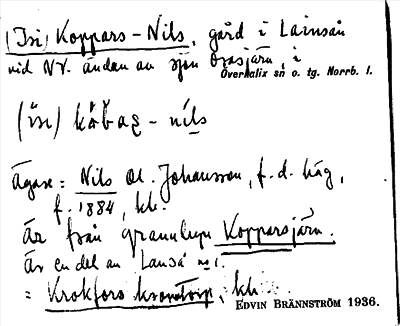 (Isi) Koppars-Nils, gård i Lainsån
vid NV. ändan av sjön Orasjärv, i
Överkalix sn o. tg. Norrb. l.
(isi) - nils
Ägare: Nils Ol. Johansson, f.d. häg,
f. 1884, kl.
Är från grannbyn Kopparsjärv.
Är en del av Lanså nr 1.
= Krokfors kronotorp, kl.
EDVIN BRÄNNSTRÖM 1936.